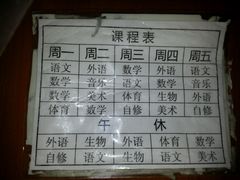 课程表
周一 周二 周三 周四 周五
语文 外语 数学 外语 语文
数学 音乐 语文 数学 音乐
数学 美术 体育 生物 外语
体育 数学 自修 美术 自修
午 休
外语 生物 外语 体育 数学
自修 语文 生物 语文 美术